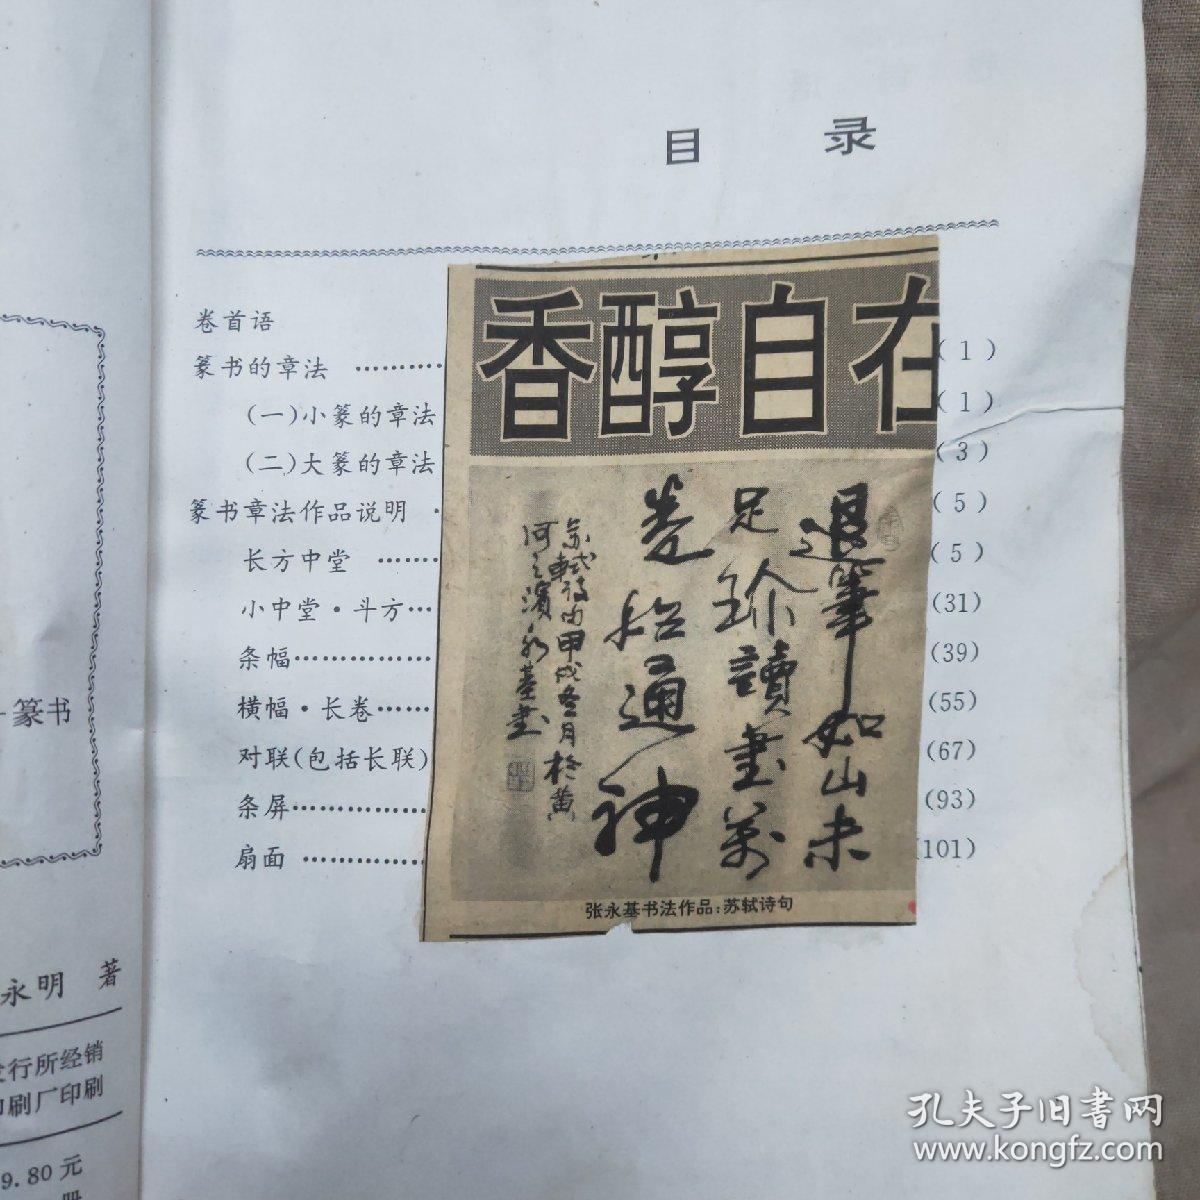 目 录
卷首语
篆书的章法 ………… (1)
(一)小篆的章法 (1)
(二)大篆的章法 (3)
篆书章法作品说明 (5)
长方中堂 …… (5)
小中堂·斗方… (31)
条幅……………… (39)
横幅·长卷…… (55)
对联(包括长联) (67)
条屏……………… (93)
扇面 …………… (101)
香醇自在
退筆如山未
足珍讀書萬
卷始通神
苏轼诗句甲戌冬月於黄
河之濱永基書
张永基书法作品:苏轼诗句
篆书
永明 著
发行所经销
印刷厂印刷
9.80元
册
孔夫子旧书网
www.kongfz.com